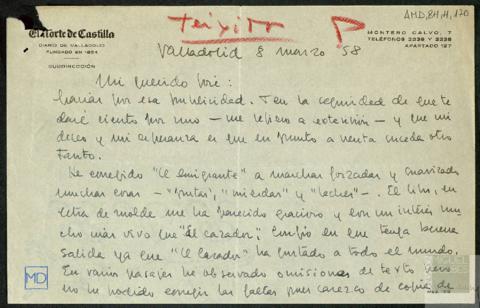 Teixidor
AMD,84,4,170
El Norte de Castilla
DIARIO DE VALLADOLID
FUNDADO EN 1854
SUBDIRECCIÓN
MONTERO CALVO, 7
TELÉFONOS 2238 Y 2238
APARTADO 127
Valladolid 8 marzo 58
Mi querido José:
Gracias por esa publicidad. Ten la seguridad de que te
daré ciento por uno — me refiero a extensión — y que mi
deseo y mi esperanza es que en punto a venta suceda otro
tanto.
He corregido "El emigrante" a marchas forzadas y suavizado
muchas cosas — "putas", "mierdas" y "leches" —. El libro, en
letra de molde me ha parecido gracioso y con un interés mu
cho más vivo que "El cazador". Confío en que tenga buena
salida ya que "El Cazador" ha gustado a todo el mundo.
En varios pasajes he observado omisiones de texto pero
no he podido corregir las faltas pues carezco de copia de
MD